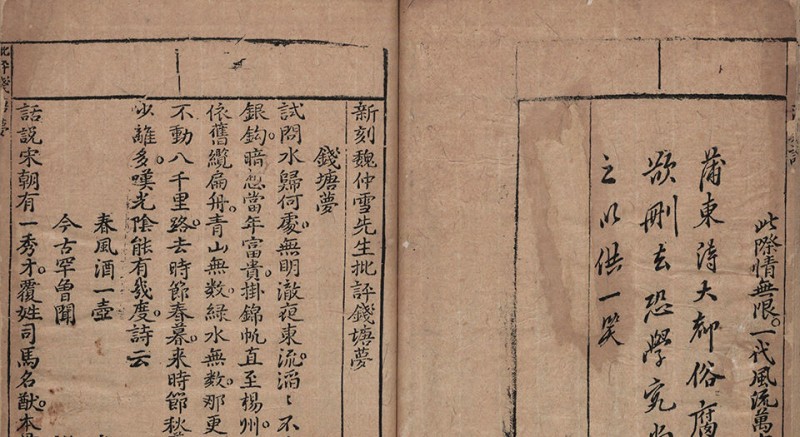 此際情無限。一代風流萬
蒲東詩大都俗腐
欲刪去恐學究
之以供一笑
新刻魏仲雪先生批評錢塘夢
錢塘夢
試問水歸何處。無明徹夜東流。滔〻不
銀鈎。暗想當年富貴。掛錦帆直至楊州。
依舊纜扁舟。青山無数。綠水無数。那更
不動八千里路。去時節春暮。來時節秋
少離多。嘆光陰能有幾度。詩云
春風酒一壺
今古罕曾聞
話說宋朝有一秀才。覆姓司馬名猷。本